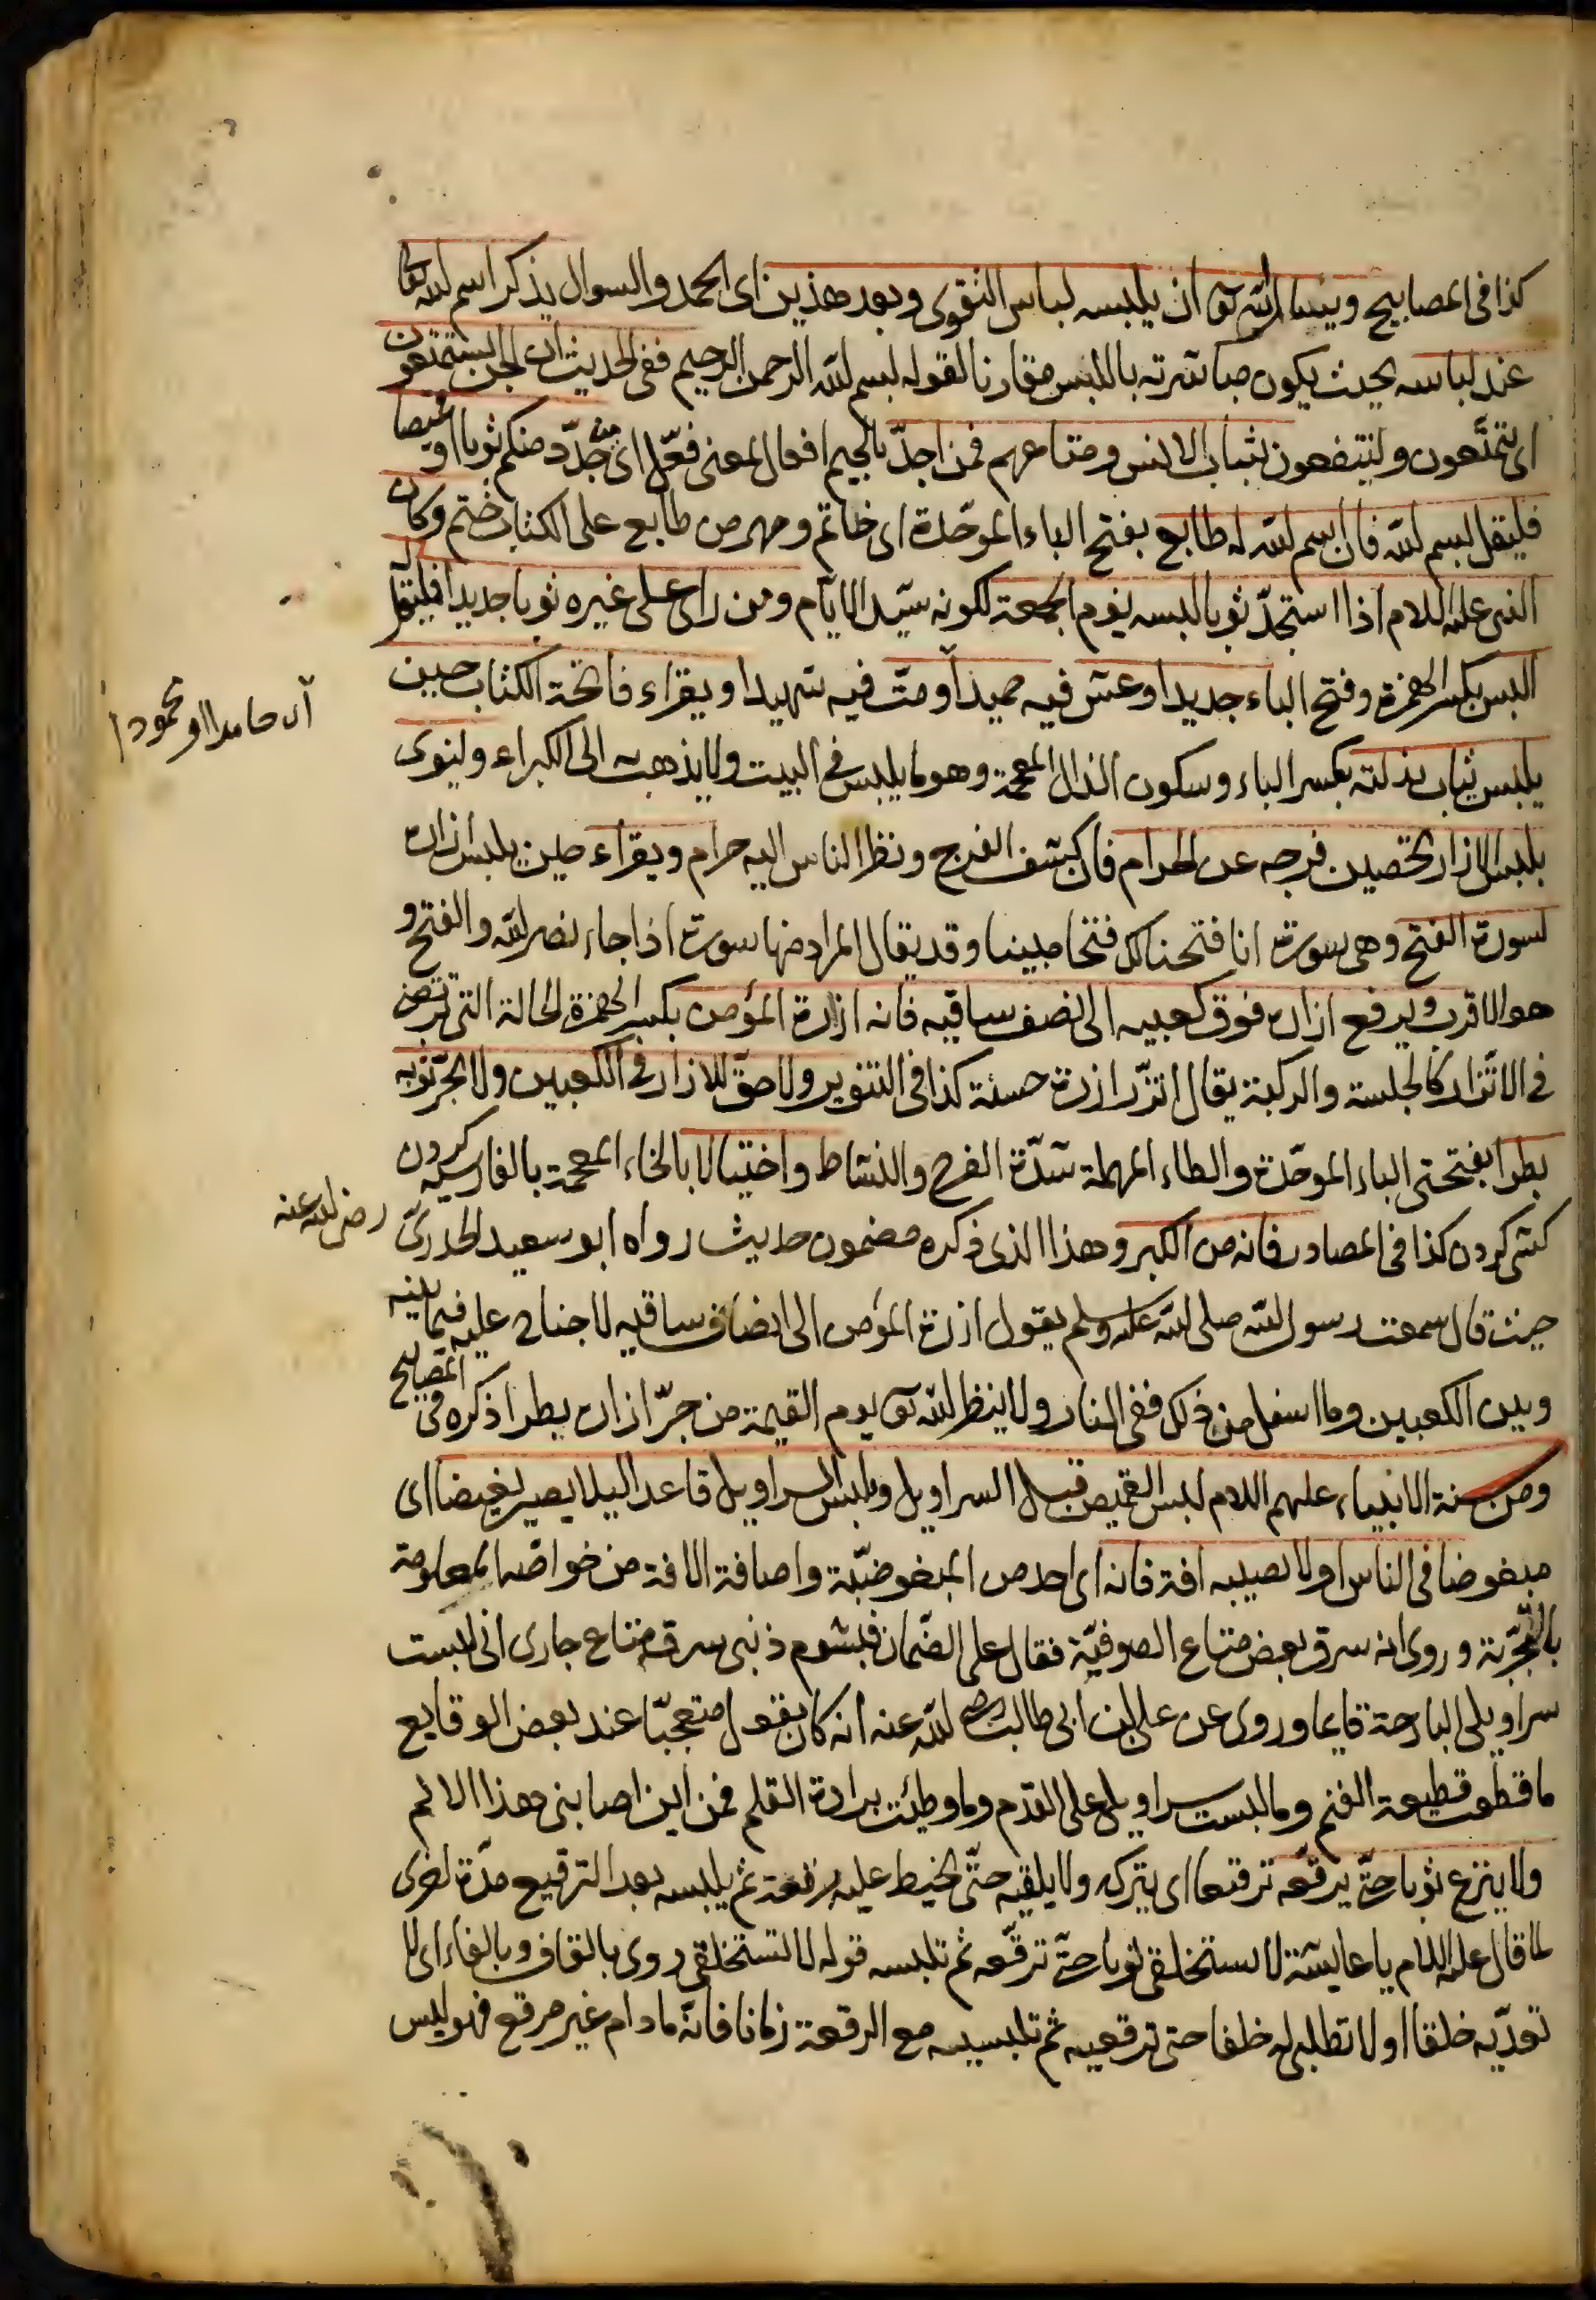 كذا فى المصابيح ويسأل الله تعالى ان يلبسه لباس التقوى وبعد هذين اى الحمد والسوال يذكر اسم الله تعالى
عند لباسه بحيث يكون مباشرته باللبس مقارنا لقوله بسم الله الرحمن الرحيم ففى الحديث ان الجن ليستمتعون
اى يتمتعون ولينتفعون بثياب الانس ومتاعهم فمن اجدّ بالجيم افعال لمعنى فعّل اى من جدّد منكم ثوبا او قميصا
فليقل بسم الله فان بسم الله له طابع بفتح الباء الموحّدة اى خاتم ومهر من طابع على الكتاب ختم وكان
النبى عليه السلام اذا استجدّ ثوبا لبسه يوم الجمعة لكونه سيّد الايّام ومن راى على غيره ثوبا جديدا فليقل له
البس بكسر الهمزة وفتح الباء جديدا وعش فيه حميدا ومتّ فيه شهيدا ويقراء فاتحة الكتاب حين
اى حامدا او محمودا
يلبس ثياب بذلته بكسر الباء وسكون الذال المعجمة وهو ما يلبس فى البيت ولا يذهب به الى الكبراء ولينوى
بلبس الازار تحصين فرجه عن الحرام فان كشف الفرج ونظر الناس اليه حرام ويقراء حين يلبس ازاره
لسورة الفتح وهى سورة انا فتحنا لك فتحا مبينا وقد يقال المراد منها سورة اذا جاء نصر الله والفتح و
هو الاقرب ويرفع ازاره فوق كعبيه الى نصف ساقيه فانه ازرة المؤمن بكسر الهمزة الحالة التى ترتضى
فى الاتّزار كالجلسة والركبة يقال اتزّر ازرة حسنة كذا فى التنوير ولا حقّ للازار فى الكعبين ولا يجرّ ثوبه
بطرا بفتحتى الباء الموحّدة والطاء المهملة شدّة الفرح والنشاط واختيالا بالخاء المعجمة بالفارسية كردن
كشى كردن كذا فى المصادر فانه من الكبر وهذا الذى ذكره مضمون حديث رواه ابو سعيد الخدرىّ رضى الله عنه
حيث قال سمعت رسول الله صلى الله عليه وسلم يقول ازرة المؤمن الى انصاف ساقيه لا جناح عليه فيما بينه
وبين الكعبين وما اسفل من ذلك ففى النار ولا ينظر الله تعالى يوم القيمة من جرّ ازاره بطرا ذكره فى المصابيح
ومن سنة الانبياء عليهم السلام لبس القميص قبل السراويل ويلبس السراويل قاعدا ليلا يصير بغيضا اى
مبغوضا فى الناس او لا يصيبه افة فانه اى احد من المبغوضيّة واصابة الافة من خواصّه المعلومة
بالتجربة وروى انه سرق بعض متاع الصوفيّة فقال على الضمان فبشوم ذنبى سرق متاع جارى انى لبست
سراويلى البارحة قايما وروى عن على بن ابى طالب رضى الله عنه انه كان يقول متعجّبا عند بعض الوقايع
ما قطعت قطيعة الغنم وما لبست سراويلى على القدم وما وطئت برادة القلم فمن اين اصابنى هذا الالم
ولا ينزع ثوبا حتّى يرقّعه ترقيعا اى يتركه ولا يلقيه حتّى يخيط عليه رقعة ثم يلبسه بعد الترقيع مدّة اخرى
لما قال عليه السلام يا عايشة لا تستخلقى ثوبا حتّى ترقّعه ثم تلبسه قوله لا تستخلقى روى بالقاف وبالفاء اى لا
تعدّيه خلقا او لا تطلبى له خلفا حتى ترقعيه ثم تلبسيه مع الرقعة زمانا فانّه ما دام غير مرقع فهو ليس